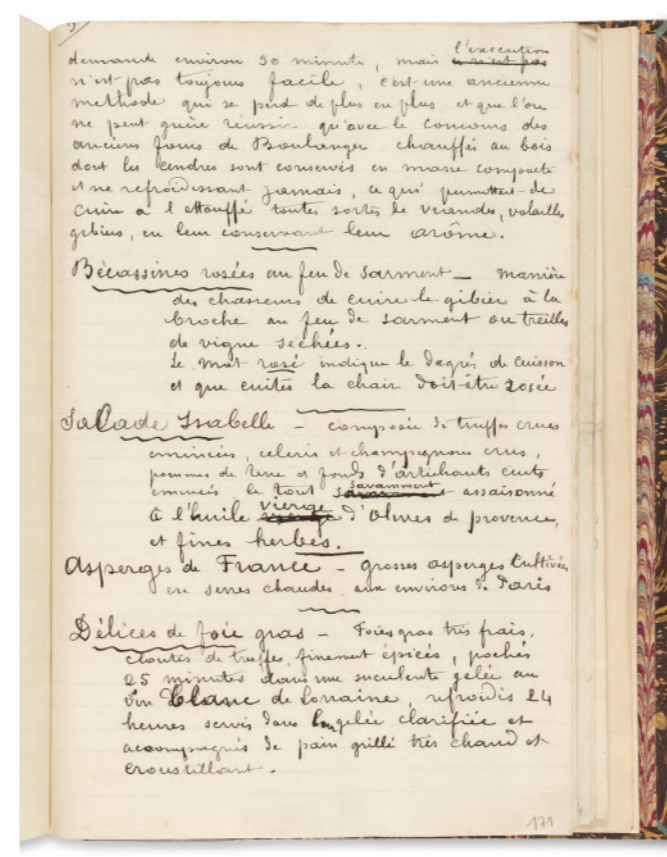 demande environ 30 minute, mais l'execution
n'est pas toujours facile, c'est une ancienne
methode qui se perd de plus en plus et que l'on
ne peut guère réussir qu'avec le concours des
anciens fours de Boulanger chauffés au bois
dont les cendres sont conservés en masse compacte
et ne refroidissant jamais, ce qui permettait de
cuire a l'ettouffé toutes sortes de viandes, volailles
gibiers, en leur conservant leur arôme.
Bécassines rosées au feu de sarment _ manière
des chasseurs de cuire le gibier à la
broche au feu de sarment ou treilles
de vigne séchées.
Le mot rosé indique le degrés de cuisson
et que cuites la chair doit être rosée
Salade Isabelle - composée de truffes crues
emincées, celeris et champignons crus,
pommes de terre et fonds d'artichauts cuits
emincés le tout savamment assaisonné
à l'huile vierge d'olives de provence,
et fines herbes.
Asperges de France - grosses asperges cultivées
en serres chaudes aux environs de Paris
Délices de foie gras - Foies gras très frais,
cloutés de truffes, finement épicés, pochés
25 minutes dans une succulente gelée au
vin blanc de Lorraine, refroidis 24
heures servis dans gelée clarifiée et
accompagnés de pain grillé très chaud et
croustillant.
171